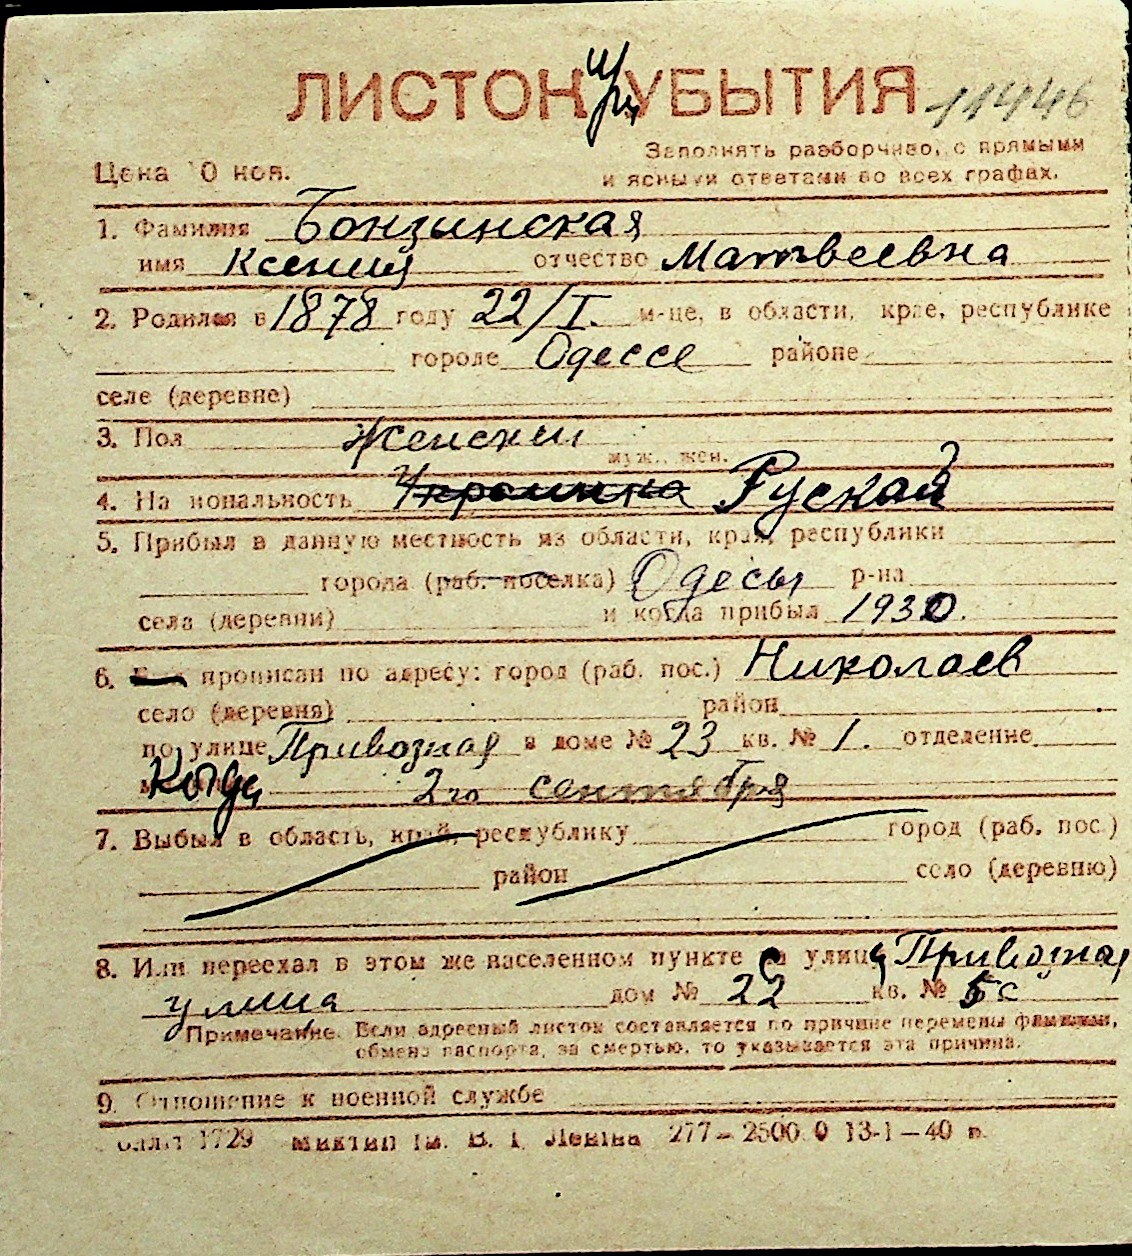 ЛИСТОК УБЫТИЯ 11446
Цена 10 коп.
Заполнять разборчиво, с прямыми
и ясными ответами во всех графах.
1. Фамилия Бонзинская
имя Ксения отчество Матвеевна
2. Родился в 1878 году 22/I. м-це, в области, крае, республике
городе Одессе районе
селе (деревне)
3. Пол Женский
муж., жен.
4. Национальность Украинка Руская
5. Прибыл в данную местность из области, края, республики
города (раб. поселка) Одесы р-на
села (деревни) и когда прибыл 1930.
6. прописан по адресу: город (раб. пос.) Николаев
село (деревня) район
по улице Привозная в доме № 23 кв. № 1. отделение
Когда 2го сентября
7. Выбыл в область, край, республику город (раб. пос.)
район село (деревню)
8. Или переехал в этом же населенном пункте с улиц Привозная
улица дом № 22 кв. № 5с
Примечание. Если адресный листок составляется по причине перемены фамилии,
обмена паспорта, за смертью, то указывается эта причина.
9. Отношение к военной службе
1729 Миктип ім. В. І. Леніна 277–2500 0 13-1–40 р.